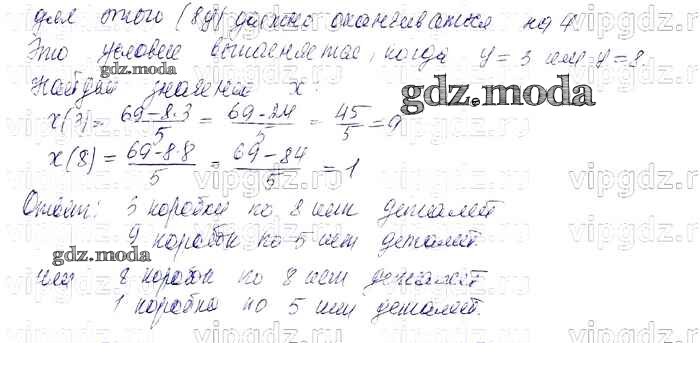 для этого (8y) должно оканчиваться на 4
Это условие выполняется, когда y=3 или y=8
gdz.moda
Найдем значения x:
gdz.moda
x(3)= 69-8·3/5 = 69-24/5 = 45/5 = 9
x(8)= 69-8·8/5 = 69-84/5 = 1
Ответ: 3 коробки по 8 шт деталей
9 коробок по 5 шт деталей
gdz.moda
или 8 коробок по 8 шт деталей
1 коробка по 5 шт деталей.
vipgdz.ru vipgdz.ru vipgdz.ru vipgdz.ru